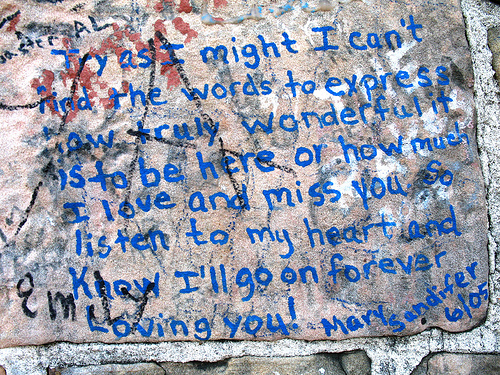 Try as I might I can't
find the words to express
how truly wonderful it
is to be here or how much
I love and miss you. So
listen to my heart and
Know I'll go on forever
Loving you!
Mary Sandifer
6/05
Emily